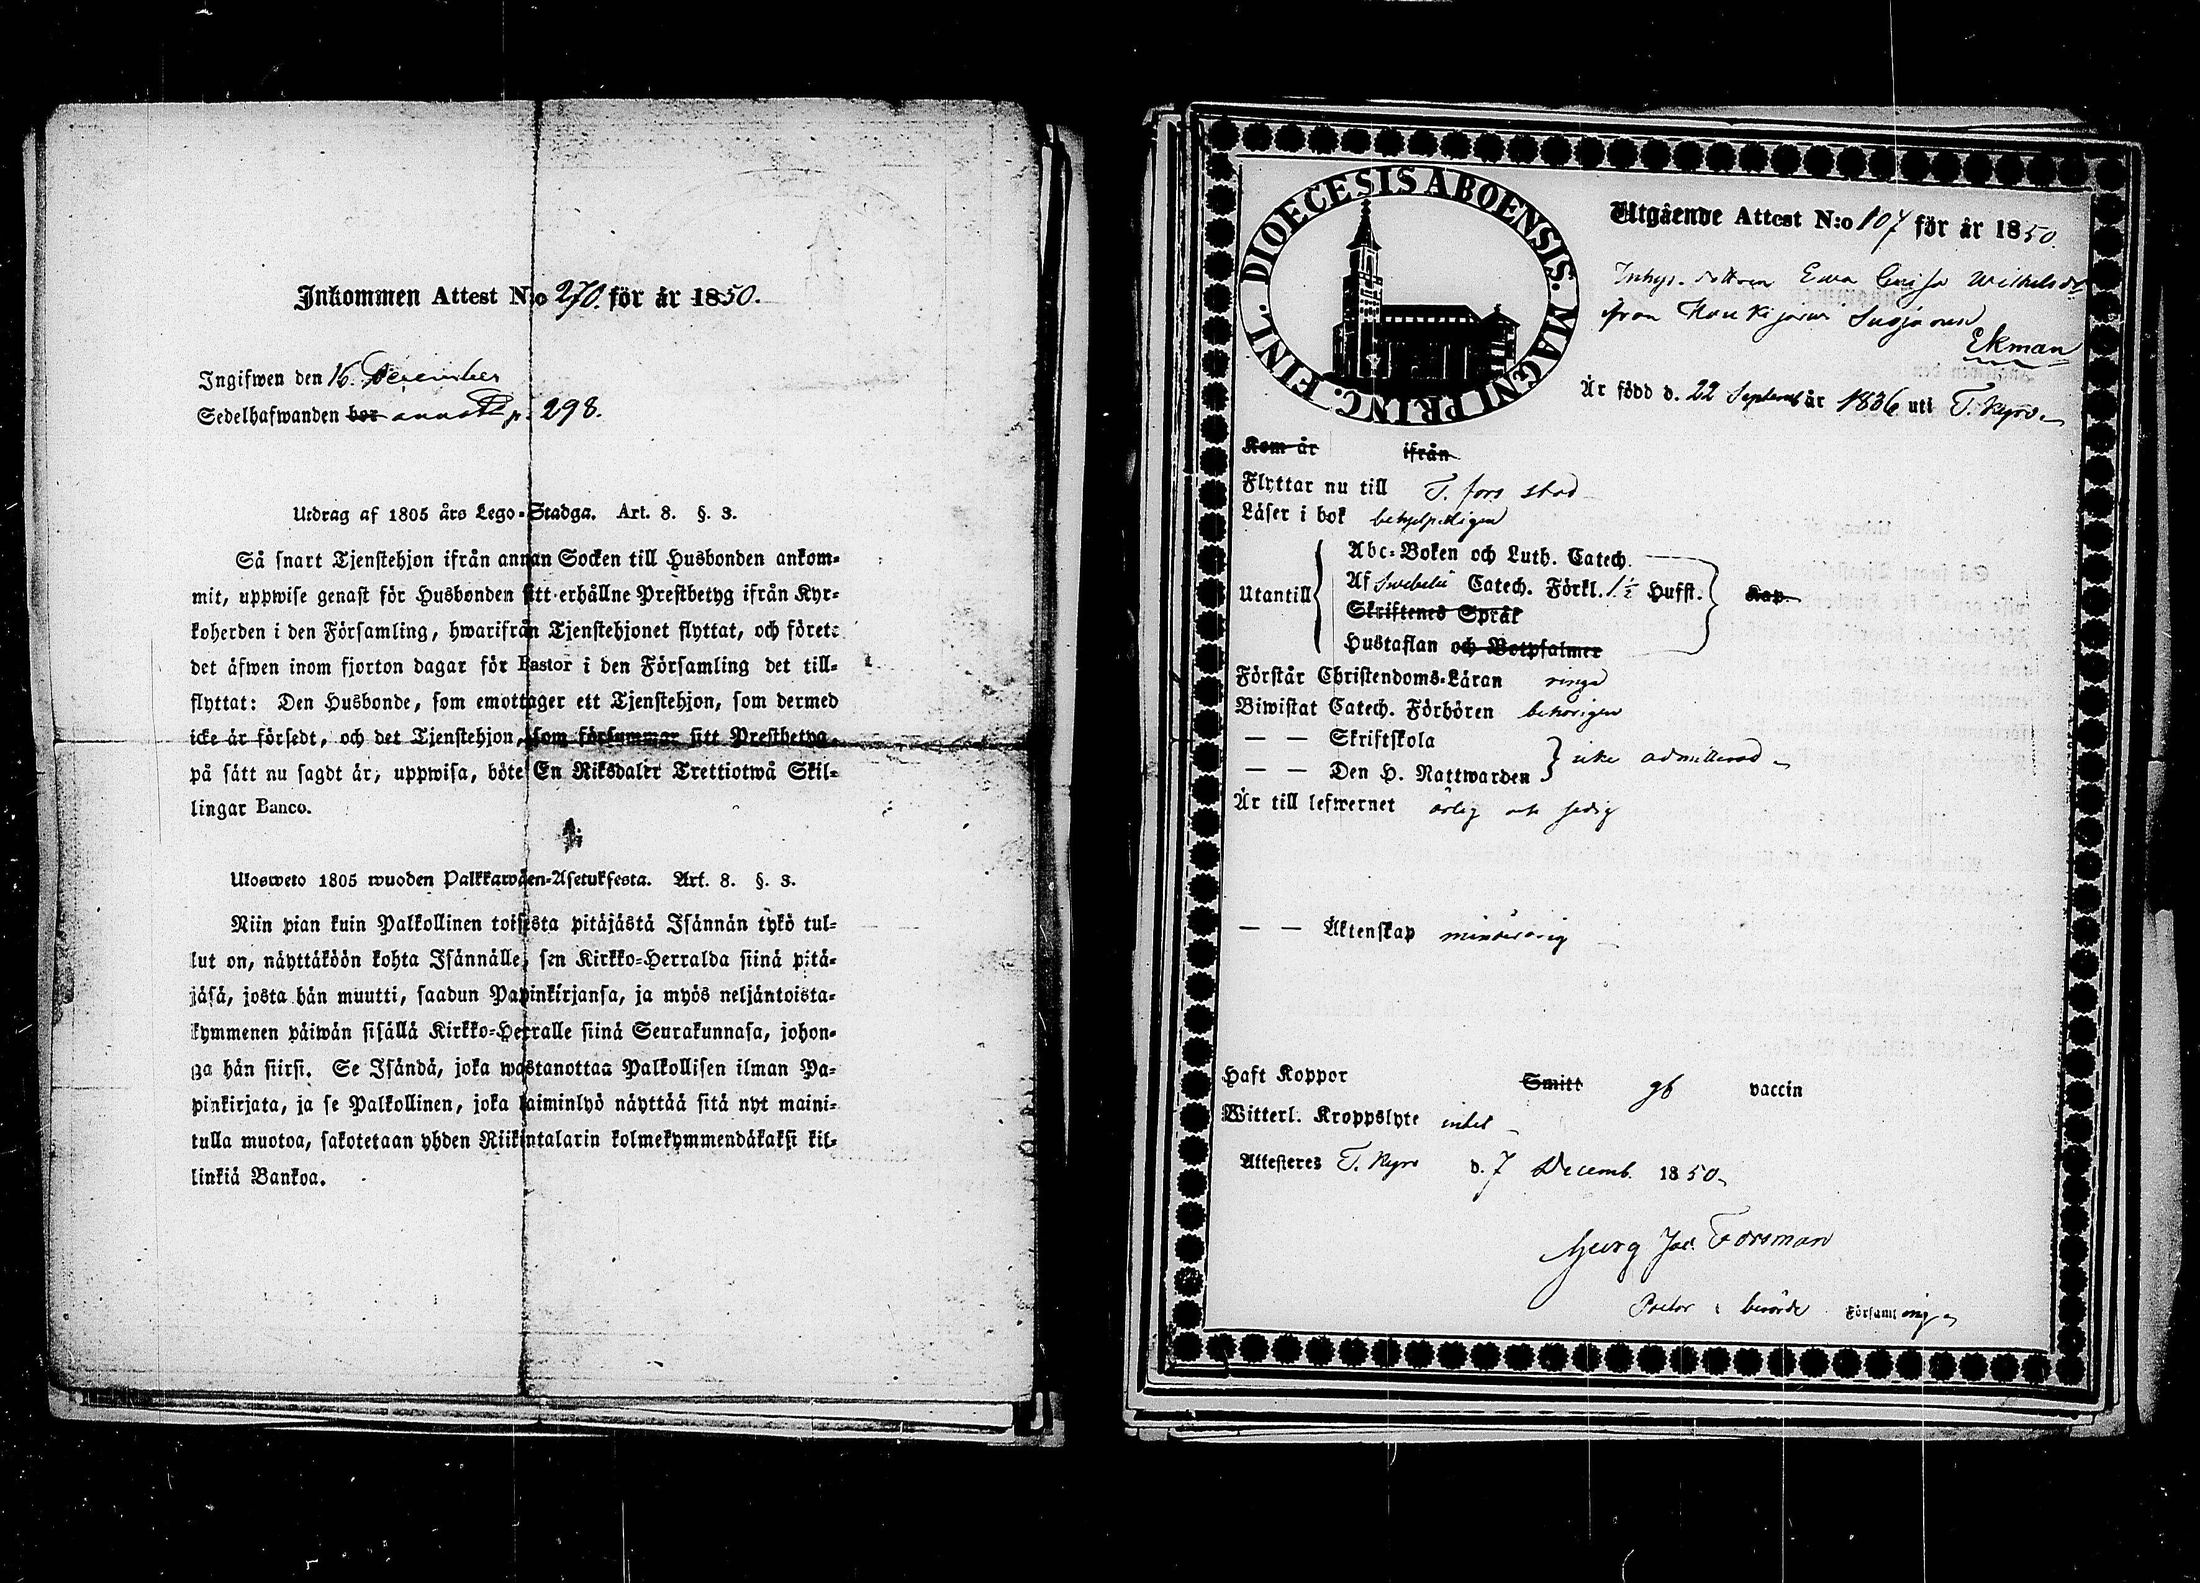 Inkommen Attest N:o 270. för år 1850.
Ingifwen den 16. December
Sedelhafwanden bor p. 298.
Utdrag af 1805 års Lego-Stadga. Art. 8. §. 3.
Så snart Tjenstehjon ifrån annan Socken till Husbonden ankom-
mit, uppwise genast för Husbonden sitt erhållne Prestbetyg ifrån Kyr-
koherden i den Församling, hwarifrån Tjenstehjonet flyttat, och förete
det äfwen inom fjorton dagar för Pastor i den Församling det till-
flyttat: Den Husbonde, som emottager ett Tjenstehjon, som dermed
icke är försedt, och det Tjenstehjon, som försummar sitt Prestbetyg,
på sätt nu sagdt är, uppwisa, böte En Riksdaler Trettiotwå Skil-
lingar Banco.
Ulosweto 1805 wuoden Palkkawäen-Asetuksesta. Art. 8. §. 3.
Niin pian kuin Palkollinen toisesta pitäjästä Isännän tykö tul-
lut on, näyttäköön kohta Isännälle, sen Kirkko-Herralda siinä pitä-
jäsä, josta hän muutti, saadun Papinkirjansa, ja myös neljäntoista-
kymmenen päiwän sisällä Kirkko-Herralle siinä Seurakunnasa, johon-
ga hän siirsi. Se Isändä, joka wastanottaa Palkollisen ilman Pa-
pinkirjata, ja se Palkollinen, joka laiminlyö näyttää sitä nyt maini-
tulla muotoa, sakotetaan yhden Riikintalarin kolmekymmendäkaksi kil-
linkiä Bankoa.
DIOECESIS ABOENSIS. MAGNI PRINC. FINL.
Utgående Attest N:o 107 för år 1850.
Inhys. dottren Ewa Wilhelmsdr
ifrån Haukijärwi
Ekman
Är född d. 22 Septemb år 1836 uti T. Kyro
Kom år ifrån
Flyttar nu till T. fors stad
Läser i bok behjelpeligen
Abc-Boken och Luth. Catech.
Utantill Af Swebelii Catech. Förkl. 1 1/2 Hufst. Kap.
Skriftenes Språk
Hustaflan och Botpsalmer
Förstår Christendoms-Läran ringa
Biwistat Catech. Förhören behörigen
— — Skriftskola
— — Den H. Nattwarden icke admitterad
Är till lefwernet ärlig och sedig
— — Äktenskap minderårig
Haft Koppor Smitt gb vaccin
Witterl. Kroppslyte intet
Attesteres T. Kyro d. 7 Decemb. 1850
Georg Jac. Forsman
i berörde Församling